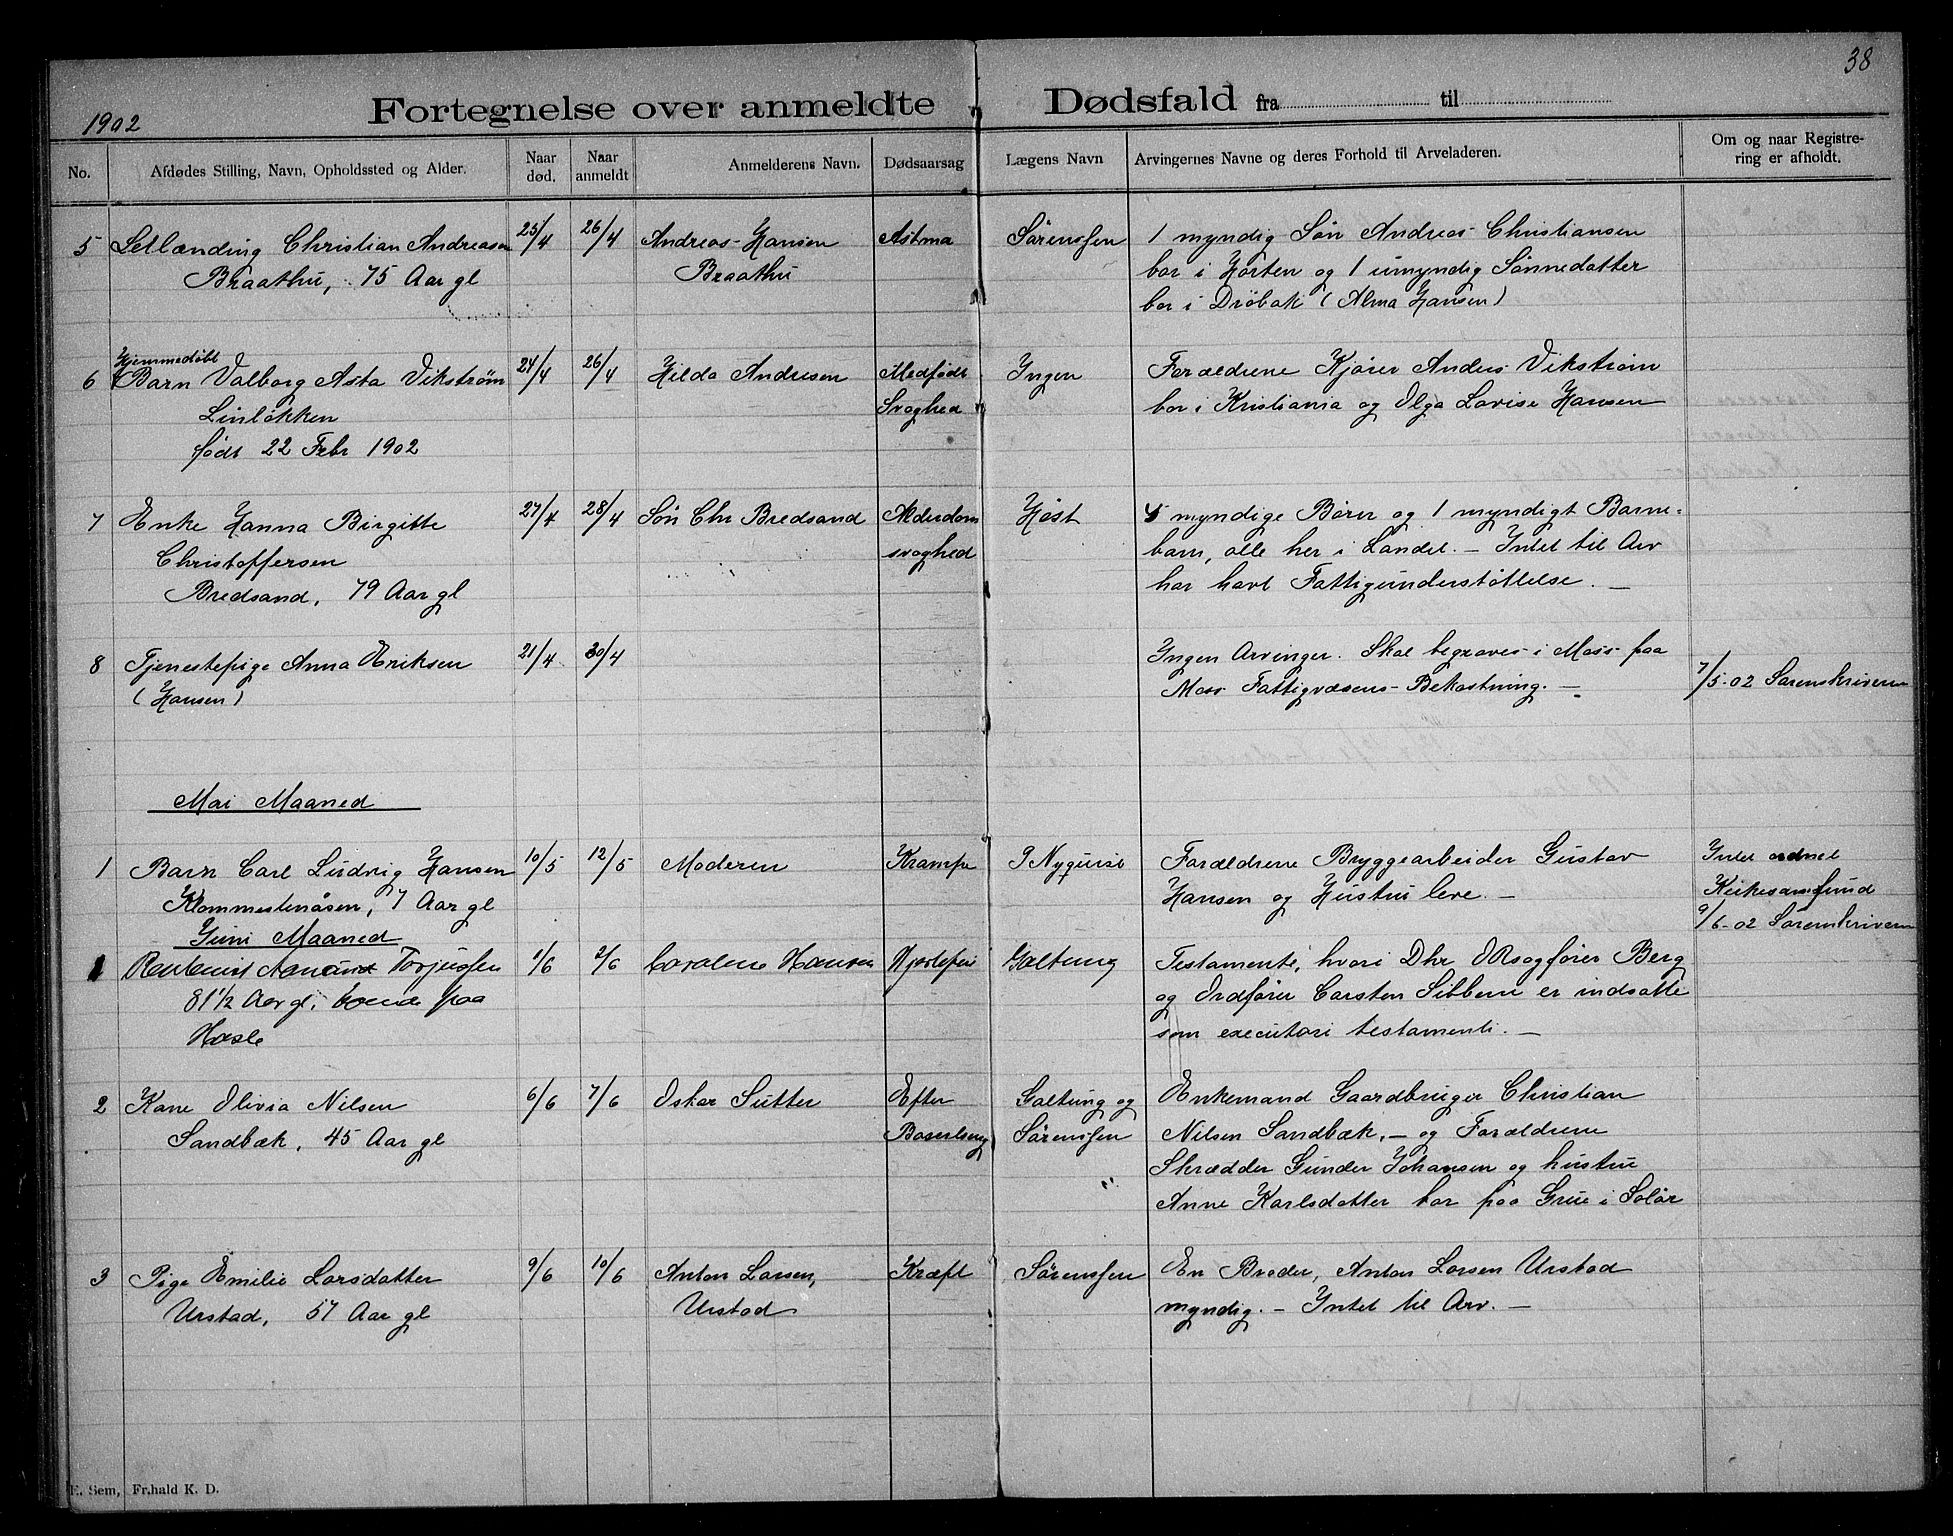 38
1902
Fortegnelse over anmeldte Dødsfald fra til
No.
Afdødes Stilling, Navn, Opholdssted og Alder.
Naar død.
Naar anmeldt
Anmelderens Navn.
Dødsaarsag
Lægens Navn
Arvingernes Navne og deres Forhold til Arveladeren.
Om og naar Registre-
ring er afholdt.
5 Letlænding Christian Andreasen 25/4 26/4 Andreas Hansen Astma Sørenssen 1 myndig Søn Andreas Christiansen
Braathu, 75 Aar gl Braathu bor i Horten og 1 umyndig Sønnedatter
bor i Drøbak (Alma Hansen)
Hjemmedøbt
6 Barn Valborg Asta Vikstrøm 24/4 26/4 Hilda Andresen Medfødt Ingen Forældrene Kjører Anders Vikstrøm
Linløkken Svaghed bor i Kristiania og Olga Lovise Hansen
født 22 Febr 1902
7 Enke Hanna Birgitte 27/4 28/4 Søn Chr Bredsand Alderdom Høst 5 myndige Børn og 1 myndigt Barne-
Christoffersen svaghed barn, alle her i Landet. – Intet til Arv
Bredsand, 79 Aar gl har havt Fattigunderstøttelse. —
8 Tjenestepige Anna Eriksen 21/4 30/4 Ingen Arvinger. Skal begraves i Moss paa
(Hansen) Moss Fattigvæsens Bekostning. — 7/5-02 Sorenskriveren
Mai Maaned
1 Barn Carl Ludvig Hansen 10/5 12/5 Moderen Krampe Nyquist Forældrene Bryggearbeider Gustav Intet
Klommestenåsen, 7 Aar gl Hansen og Hustru leve. — Kirkesamfund
9/6-02 Sorenskriveren
Juni Maaned
1 Rentenist Torjussen 1/6 2/6 Caroline Hansen Hjertefeil Galtung Testamente, hvori Dhr ORsagfører Berg
81 1/2 Aar gl, paa og Ordfører Carsten Sibbern er indsatte
Hasle som executori testamenti. —
2 Kone Olivia Nilsen 6/6 7/6 Oskar Sutter Efter Galtung og Enkemand Gaardbruger Christian
Sandbæk, 45 Aar gl Barselseng Sørenssen Nilsen Sandbæk, – og Forældrene
Skrædder Gunder Johansen og hustru
Anne Karlsdatter bor paa Grue i Solør
3 Pige Emilie Larsdatter 9/6 10/6 Anton Larsen, Kræft Sørenssen En Broder, Anton Larsen Urstad
Urstad, 57 Aar gl Urstad myndig. – Intet til Arv. —
E. Sem, Fr.hald K. D.